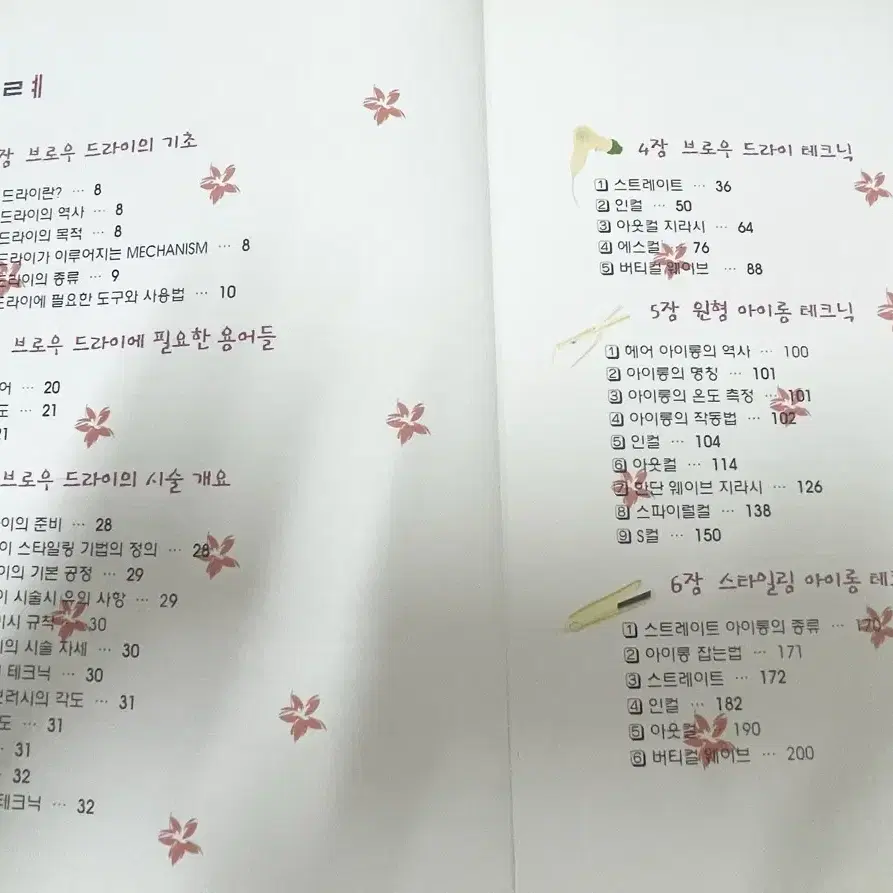 례
브로우 드라이의 기초
드라이란? ··· 8
드라이의 역사 ··· 8
드라이의 목적 ··· 8
드라이가 이루어지는 MECHANISM ··· 8
드라이의 종류 ··· 9
드라이에 필요한 도구와 사용법 ··· 10
브로우 드라이에 필요한 용어들
어 ··· 20
도 ··· 21
21
브로우 드라이의 시술 개요
이의 준비 ··· 28
이 스타일링 기법의 정의 ··· 28
이의 기본 공정 ··· 29
이 시술시 유의 사항 ··· 29
이시 규칙 ··· 30
의 시술 자세 ··· 30
테크닉 ··· 30
브러시의 각도 ··· 31
도 ··· 31
··· 31
32
테크닉 ··· 32
4장 브로우 드라이 테크닉
1 스트레이트 ··· 36
2 인컬 ··· 50
3 아웃컬 지라시 ··· 64
4 에스컬 ··· 76
5 버티컬 웨이브 ··· 88
5장 원형 아이롱 테크닉
1 헤어 아이롱의 역사 ··· 100
2 아이롱의 명칭 ··· 101
3 아이롱의 온도 측정 ··· 101
4 아이롱의 작동법 ··· 102
5 인컬 ··· 104
6 아웃컬 ··· 114
7 한단 웨이브 지라시 ··· 126
8 스파이럴컬 ··· 138
9 S컬 ··· 150
6장 스타일링 아이롱 테크
1 스트레이트 아이롱의 종류 ··· 170
2 아이롱 잡는법 ··· 171
3 스트레이트 ··· 172
4 인컬 ··· 182
5 아웃컬 ··· 190
6 버티컬 웨이브 ··· 200